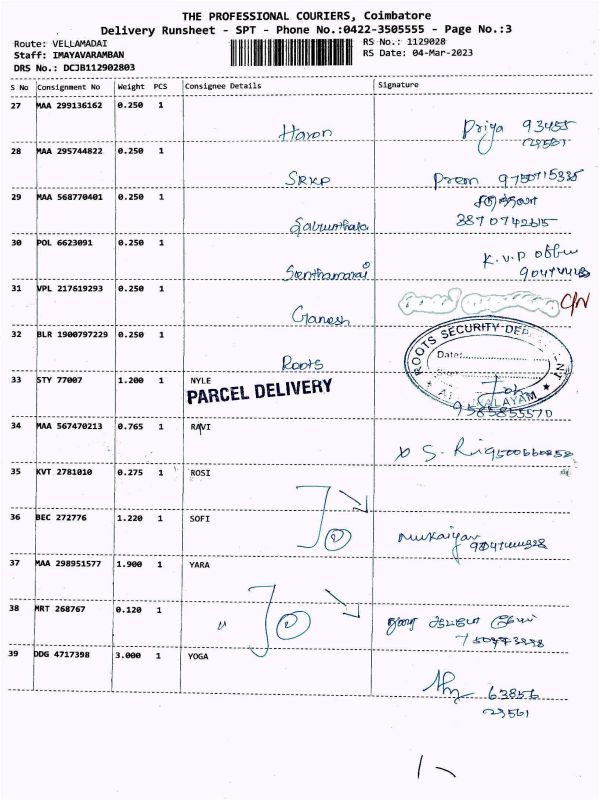 THE PROFESSIONAL COURIERS, Coimbatore
Delivery Runsheet - SPT - Phone No.:0422-3505555 - Page No.:3
Route: VELLAMADAI RS No.: 1129028
Staff: IMAYAVARAMBAN RS Date: 04-Mar-2023
DRS No.: DCJB112902803
S No Consignment No Weight PCS Consignee Details Signature
27 MAA 299136162 0.250 1 Haron Priya 93455
29561
28 MAA 295744822 0.250 1 SRKP Prem 9750715335
29 MAA 568770401 0.250 1
30 POL 6623091 0.250 1 Senthamarai K.V.P
31 VPL 217619293 0.250 1 Ganesh C/N
32 BLR 1900797229 0.250 1 Roots
ROOTS SECURITY
Date:
33 STY 77007 1.200 1 NYLE
PARCEL DELIVERY
9585855570
34 MAA 567470213 0.765 1 RAVI
35 KVT 2781010 0.275 1 ROSI
36 BEC 272776 1.220 1 SOFI
37 MAA 298951577 1.900 1 YARA
38 MRT 268767 0.120 1 "
39 DDG 4717398 3.000 1 YOGA
63856
29561